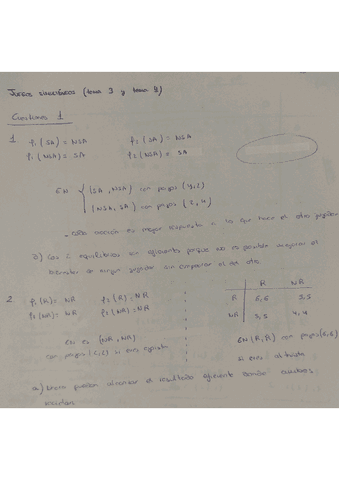 JUEGOS SIMULTÁNEOS (tema 3 y tema 4)
Cuestiones 1
1 f₁ (SA) = NSA f₂ (SA) = NSA
f₁ (NSA) = SA f₂ (NSA) = SA
EN (SA, NSA) con pagos (4,2)
(NSA, SA) con pagos (2,4)
- cada acción es mejor respuesta a lo que hace el otro jugador
b) Los 2 equilibrios son eficientes porque no es posible mejorar el
bienestar de ningún jugador sin empeorar el del otro.
2. f₁ (R) = NR f₂ (R) = NR R NR
f₁ (NR) = NR f₂ (NR) = NR R 5,5
NR 4,4
EN es (NR, NR) EN (R, R) con pagos
con pagos si eres egoísta si eres altruista
a) pueden alcanzar el resultado eficiente donde ambos